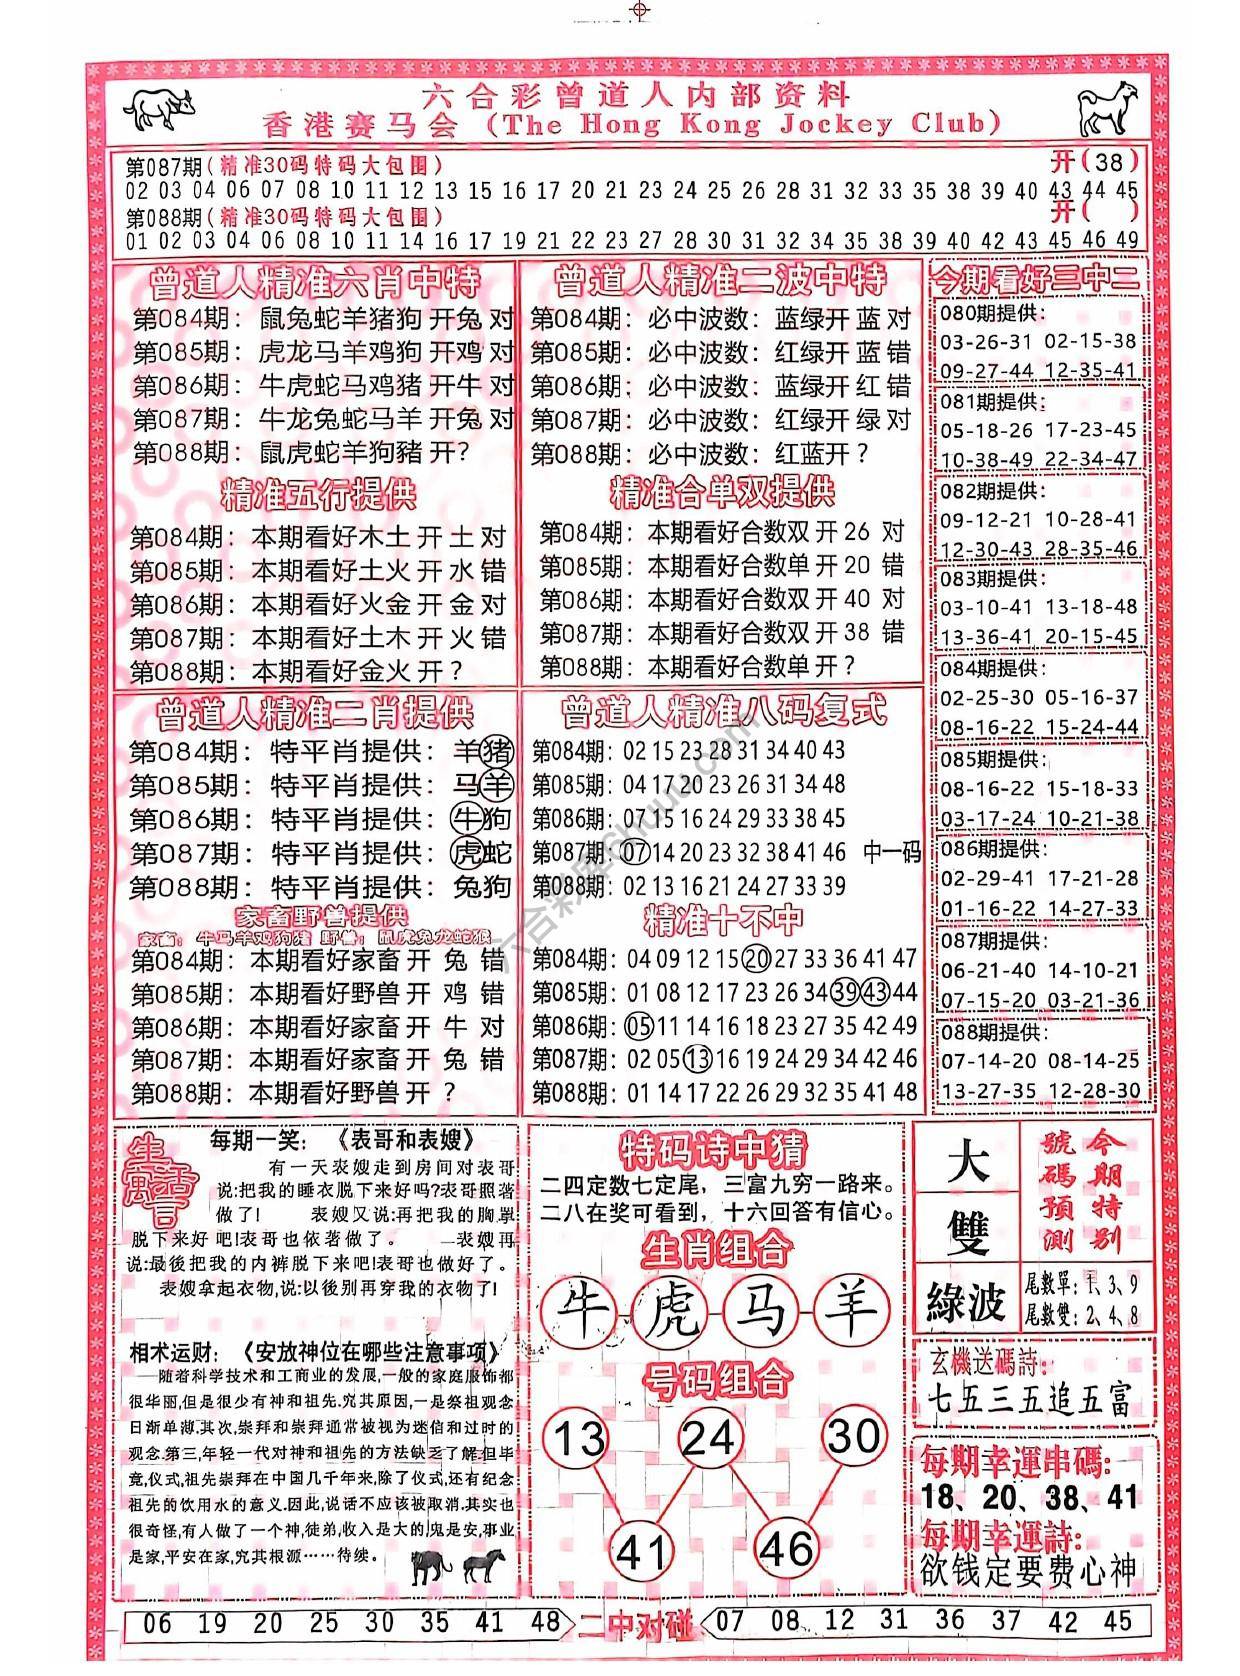 六合彩曾道人内部资料
香港赛马会 (The Hong Kong Jockey Club)
第087期(精准30码特码大包围) 开(38)
02 03 04 06 07 08 10 11 12 13 15 16 17 20 21 23 24 25 26 28 31 32 33 35 38 39 40 43 44 45
第088期(精准30码特码大包围) 开( )
01 02 03 04 06 08 10 11 14 16 17 19 21 22 23 27 28 30 31 32 34 35 38 39 40 42 43 45 46 49
曾道人精准六肖中特
第084期: 鼠兔蛇羊猪狗 开兔 对
第085期: 虎龙马羊鸡狗 开鸡 对
第086期: 牛虎蛇马鸡猪 开牛 对
第087期: 牛龙兔蛇马羊 开兔 对
第088期: 鼠虎蛇羊狗豬 开?
精准五行提供
第084期: 本期看好木土 开 土 对
第085期: 本期看好土火 开 水 错
第086期: 本期看好火金 开 金 对
第087期: 本期看好土木 开 火 错
第088期: 本期看好金火 开 ?
曾道人精准二波中特
第084期: 必中波数: 蓝绿开 蓝 对
第085期: 必中波数: 红绿开 蓝 错
第086期: 必中波数: 蓝绿开 红 错
第087期: 必中波数: 红绿开 绿 对
第088期: 必中波数: 红蓝开 ?
精准合单双提供
第084期: 本期看好合数双 开 26 对
第085期: 本期看好合数单 开 20 错
第086期: 本期看好合数双 开 40 对
第087期: 本期看好合数双 开 38 错
第088期: 本期看好合数单 开 ?
今期看好三中二
080期提供:
03-26-31 02-15-38
09-27-44 12-35-41
081期提供:
05-18-26 17-23-45
10-38-49 22-34-47
082期提供:
09-12-21 10-28-41
12-30-43 28-35-46
083期提供:
03-10-41 13-18-48
13-36-41 20-15-45
084期提供:
02-25-30 05-16-37
08-16-22 15-24-44
085期提供:
08-16-22 15-18-33
03-17-24 10-21-38
086期提供:
02-29-41 17-21-28
01-16-22 14-27-33
087期提供:
06-21-40 14-10-21
07-15-20 03-21-36
088期提供:
07-14-20 08-14-25
13-27-35 12-28-30
曾道人精准二肖提供
第084期: 特平肖提供: 羊猪
第085期: 特平肖提供: 马羊
第086期: 特平肖提供: 牛狗
第087期: 特平肖提供: 虎蛇
第088期: 特平肖提供: 兔狗
家畜野兽提供
家畜: 牛马羊鸡狗猪 野兽: 鼠虎兔龙蛇猴
第084期: 本期看好家畜 开 兔 错
第085期: 本期看好野兽 开 鸡 错
第086期: 本期看好家畜 开 牛 对
第087期: 本期看好家畜 开 兔 错
第088期: 本期看好野兽 开 ?
曾道人精准八码复式
第084期: 02 15 23 28 31 34 40 43
第085期: 04 17 20 23 26 31 34 48
第086期: 07 15 16 24 29 33 38 45
第087期: 07 14 20 23 32 38 41 46 中一码
第088期: 02 13 16 21 24 27 33 39
精准十不中
第084期: 04 09 12 15 20 27 33 36 41 47
第085期: 01 08 12 17 23 26 34 39 43 44
第086期: 05 11 14 16 18 23 27 35 42 49
第087期: 02 05 13 16 19 24 29 34 42 46
第088期: 01 14 17 22 26 29 32 35 41 48
六合彩库6huuu.com
生活寓言
每期一笑: 《表哥和表嫂》
有一天表嫂走到房间对表哥
说:把我的睡衣脱下来好吗?表哥照著
做了! 表嫂又说:再把我的胸罩
脱下来好吧!表哥也依著做了。 一表嫂再
说:最後把我的内裤脱下来吧!表哥也做好了。
表嫂拿起衣物,说:以後别再穿我的衣物了!
相术运财: 《安放神位在哪些注意事项》
随着科学技术和工商业的发展,一般的家庭服饰都
很华丽,但是很少有神和祖先.究其原因,一是祭祖观念
日渐单薄.其次,崇拜和崇拜通常被视为迷信和过时的
观念.第三,年轻一代对神和祖先的方法缺乏了解.但毕
竟,仪式,祖先崇拜在中国几千年来,除了仪式,还有纪念
祖先的饮用水的意义.因此,说话不应该被取消.其实也
很奇怪,有人做了一个神,徒弟,收入是大的鬼是安,事业
是家,平安在家,究其根源……待续。
特码诗中猜
二四定数七定尾，三富九穷一路来。
二八在奖可看到，十六回答有信心。
生肖组合
牛 虎 马 羊
号码组合
13 24 30
41 46
大
雙
綠波
今期特别
號碼預測
尾數單: 1、3、9
尾數雙: 2、4、8
玄機送碼詩:
七五三五追五富
每期幸運串碼:
18、20、38、41
每期幸運詩:
欲钱定要费心神
06 19 20 25 30 35 41 48 二中对碰 07 08 12 31 36 37 42 45